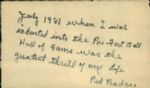 July 1981 when I was
inducted into the Pro Foot Ball
Hall of Fame was the
greatest thrill of my life
Red Badgro